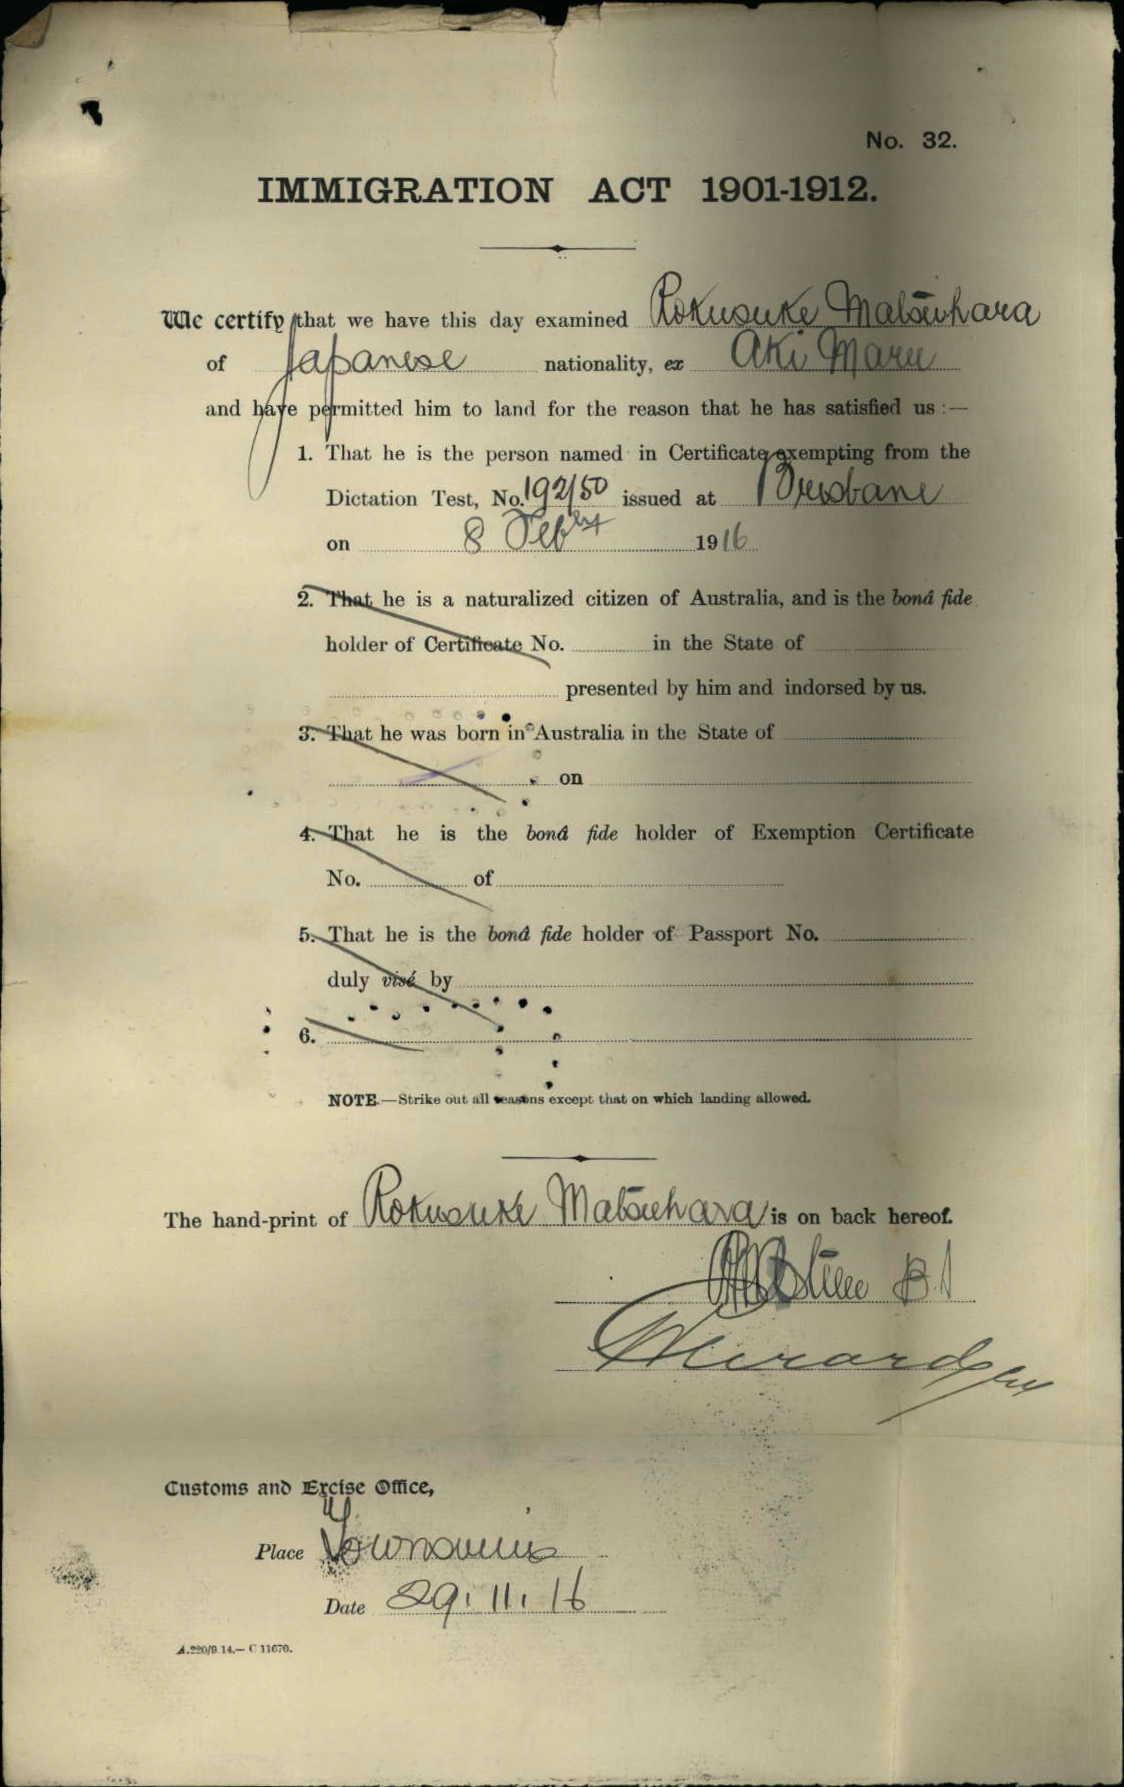 No. 32.
IMMIGRATION ACT 1901-1912.
We certify that we have this day examined Rokusuke Matsuhara
of Japanese nationality, ex Aki Maru
and have permitted him to land for the reason that he has satisfied us :—
1. That he is the person named in Certificate exempting from the
Dictation Test, No. 192/50 issued at Brisbane
on 8 Febry 1916
2. That he is a naturalized citizen of Australia, and is the bonâ fide
holder of Certificate No. in the State of
presented by him and indorsed by us.
3. That he was born in Australia in the State of
on
4. That he is the bonâ fide holder of Exemption Certificate
No. of
5. That he is the bonâ fide holder of Passport No.
duly visé by
6.
NOTE.—Strike out all reasons except that on which landing allowed.
The hand-print of Rokusuke Matsuhara is on back hereof.
Customs and Excise Office,
Place Townsville
Date 29.11.16
A.220/9.14.— C 11670.